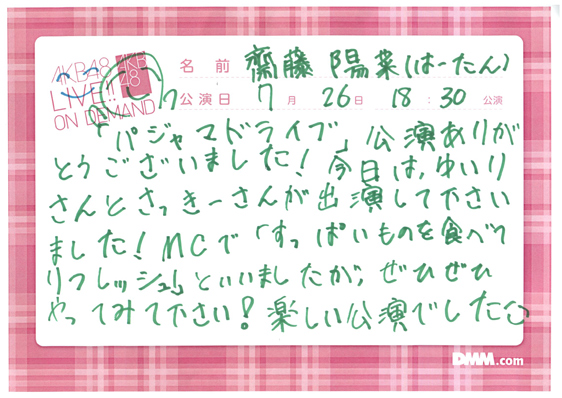 AKB48
LIVE!!
ON DEMAND
AKB
48
名前 齋藤 陽菜(はーたん)
公演日 7月26日 18:30公演
「パジャマドライブ」公演ありが
とうございました！今日は、ゆいり
さんとさっきーさんが出演して下さい
ました！MCで「すっぱいものを食べて
リフレッシュ」といいましたが、ぜひぜひ
やってみて下さい！楽しい公演でした
DMM.com